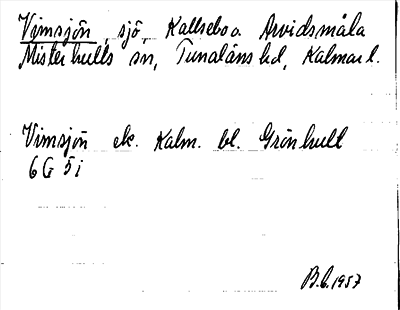 Vimsjön, sjö, Kallsebo o. Arvidsmåla
Misterhults sn, Tunaläns hd, Kalmar l.
Vimsjön ek. Kalm. bl. Grönhult
6G 5i
B.L. 1957